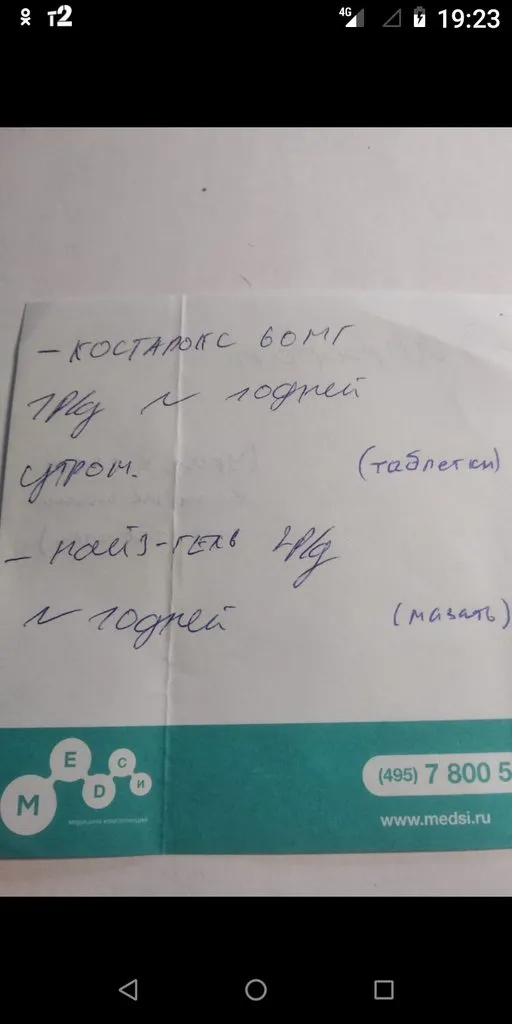 T2 4G 19:23
– КОСТАРОКС 60 МГ
1Р/д N 10 дней
утром. (таблетки)
– НАЙЗ-ГЕЛЬ 2Р/д
N 10 дней (мазать)
М Е D С И
(495) 7 800 5
www.medsi.ru